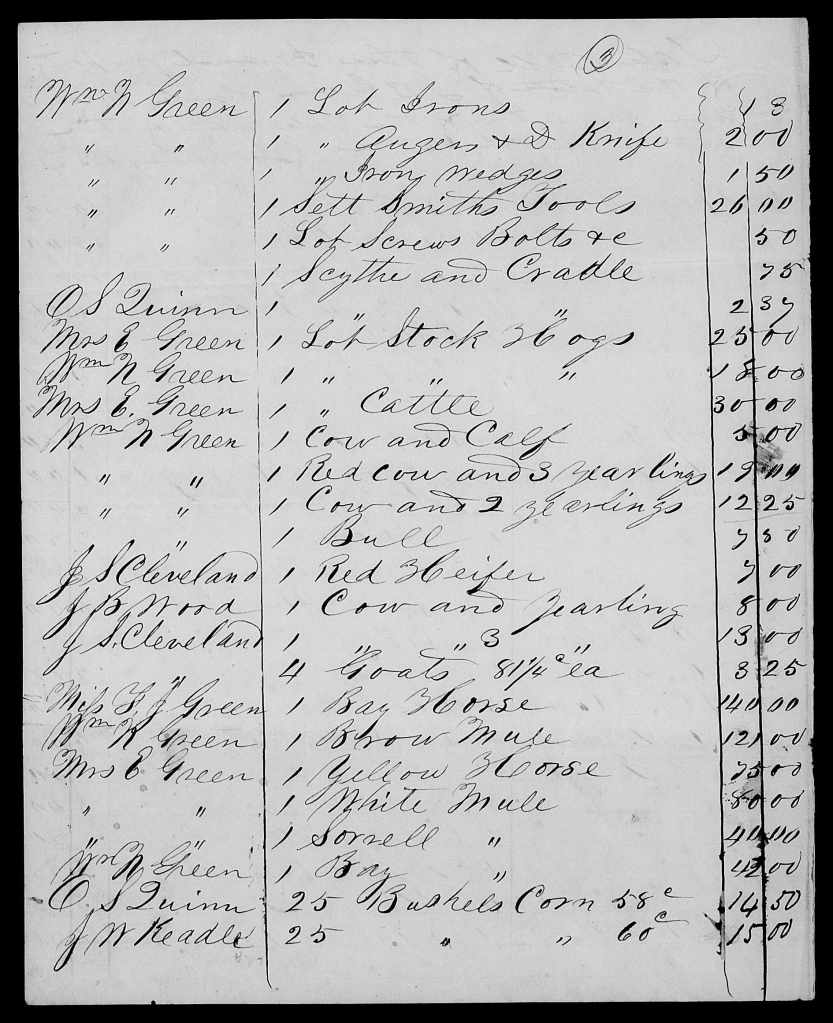 3
Wm N Green 1 Lot Irons 1 3
" " 1 " Augers & D Knife 2 00
" " 1 " Iron wedges 1 50
" " 1 Sett Smiths Tools 26 00
" " 1 Lot Screws Bolts &c 50
1 Scythe and Cradle 75
O S Quinn 1 " " 2 37
Mrs E Green 1 Lot Stock Hogs 25 00
Wm N Green 1 " " " 18 00
Mrs E. Green 1 " Cattle 30 00
Wm N Green 1 Cow and Calf 5 00
" " 1 Red cow and 3 yearlings 19 00
" " 1 Cow and 2 yearlings 12 25
" 1 Bull 7 50
J S Cleveland 1 Red Heifer 7 00
J B Wood 1 Cow and yearling 8 00
J S. Cleveland 1 " " 3 " 13 00
" 4 Goats 81 1/4 c ea 3 25
Miss F. J Green 1 Bay Horse 140 00
Wm N Green 1 Brow Mule 121 00
Mrs E Green 1 Yellow Horse 75 00
" " 1 White Mule 80 00
" " 1 Sorrell " 40 00
Wm N Green 1 Bay " 42 00
O. S Quinn 25 Bushels Corn 58c 14 50
J W Keadle 25 " " 60c 15 00